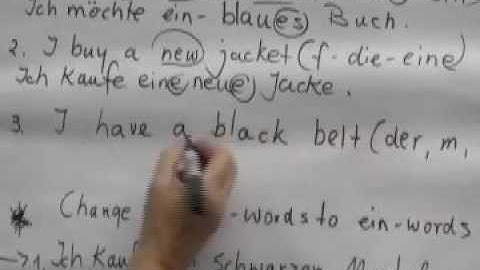 Ich möchte ein- blaues Buch.
2. I buy a new jacket (f. die-eine)
Ich Kaufe eine neue Jacke.
3. I have a black belt (der, m,
* Change -words to ein-words
→ 1. Ich Kauf schwarzen